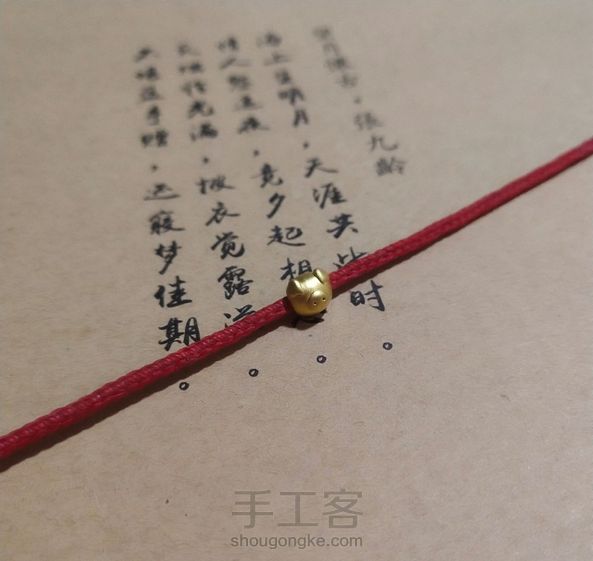 望月怀古，张九龄
海上生明月，天涯共此时。
情人怨遥夜，竟夕起相。
灭烛怜光满，披衣觉露滋。
不堪盈手赠，还寝梦佳期。
手工客
shougongke.com